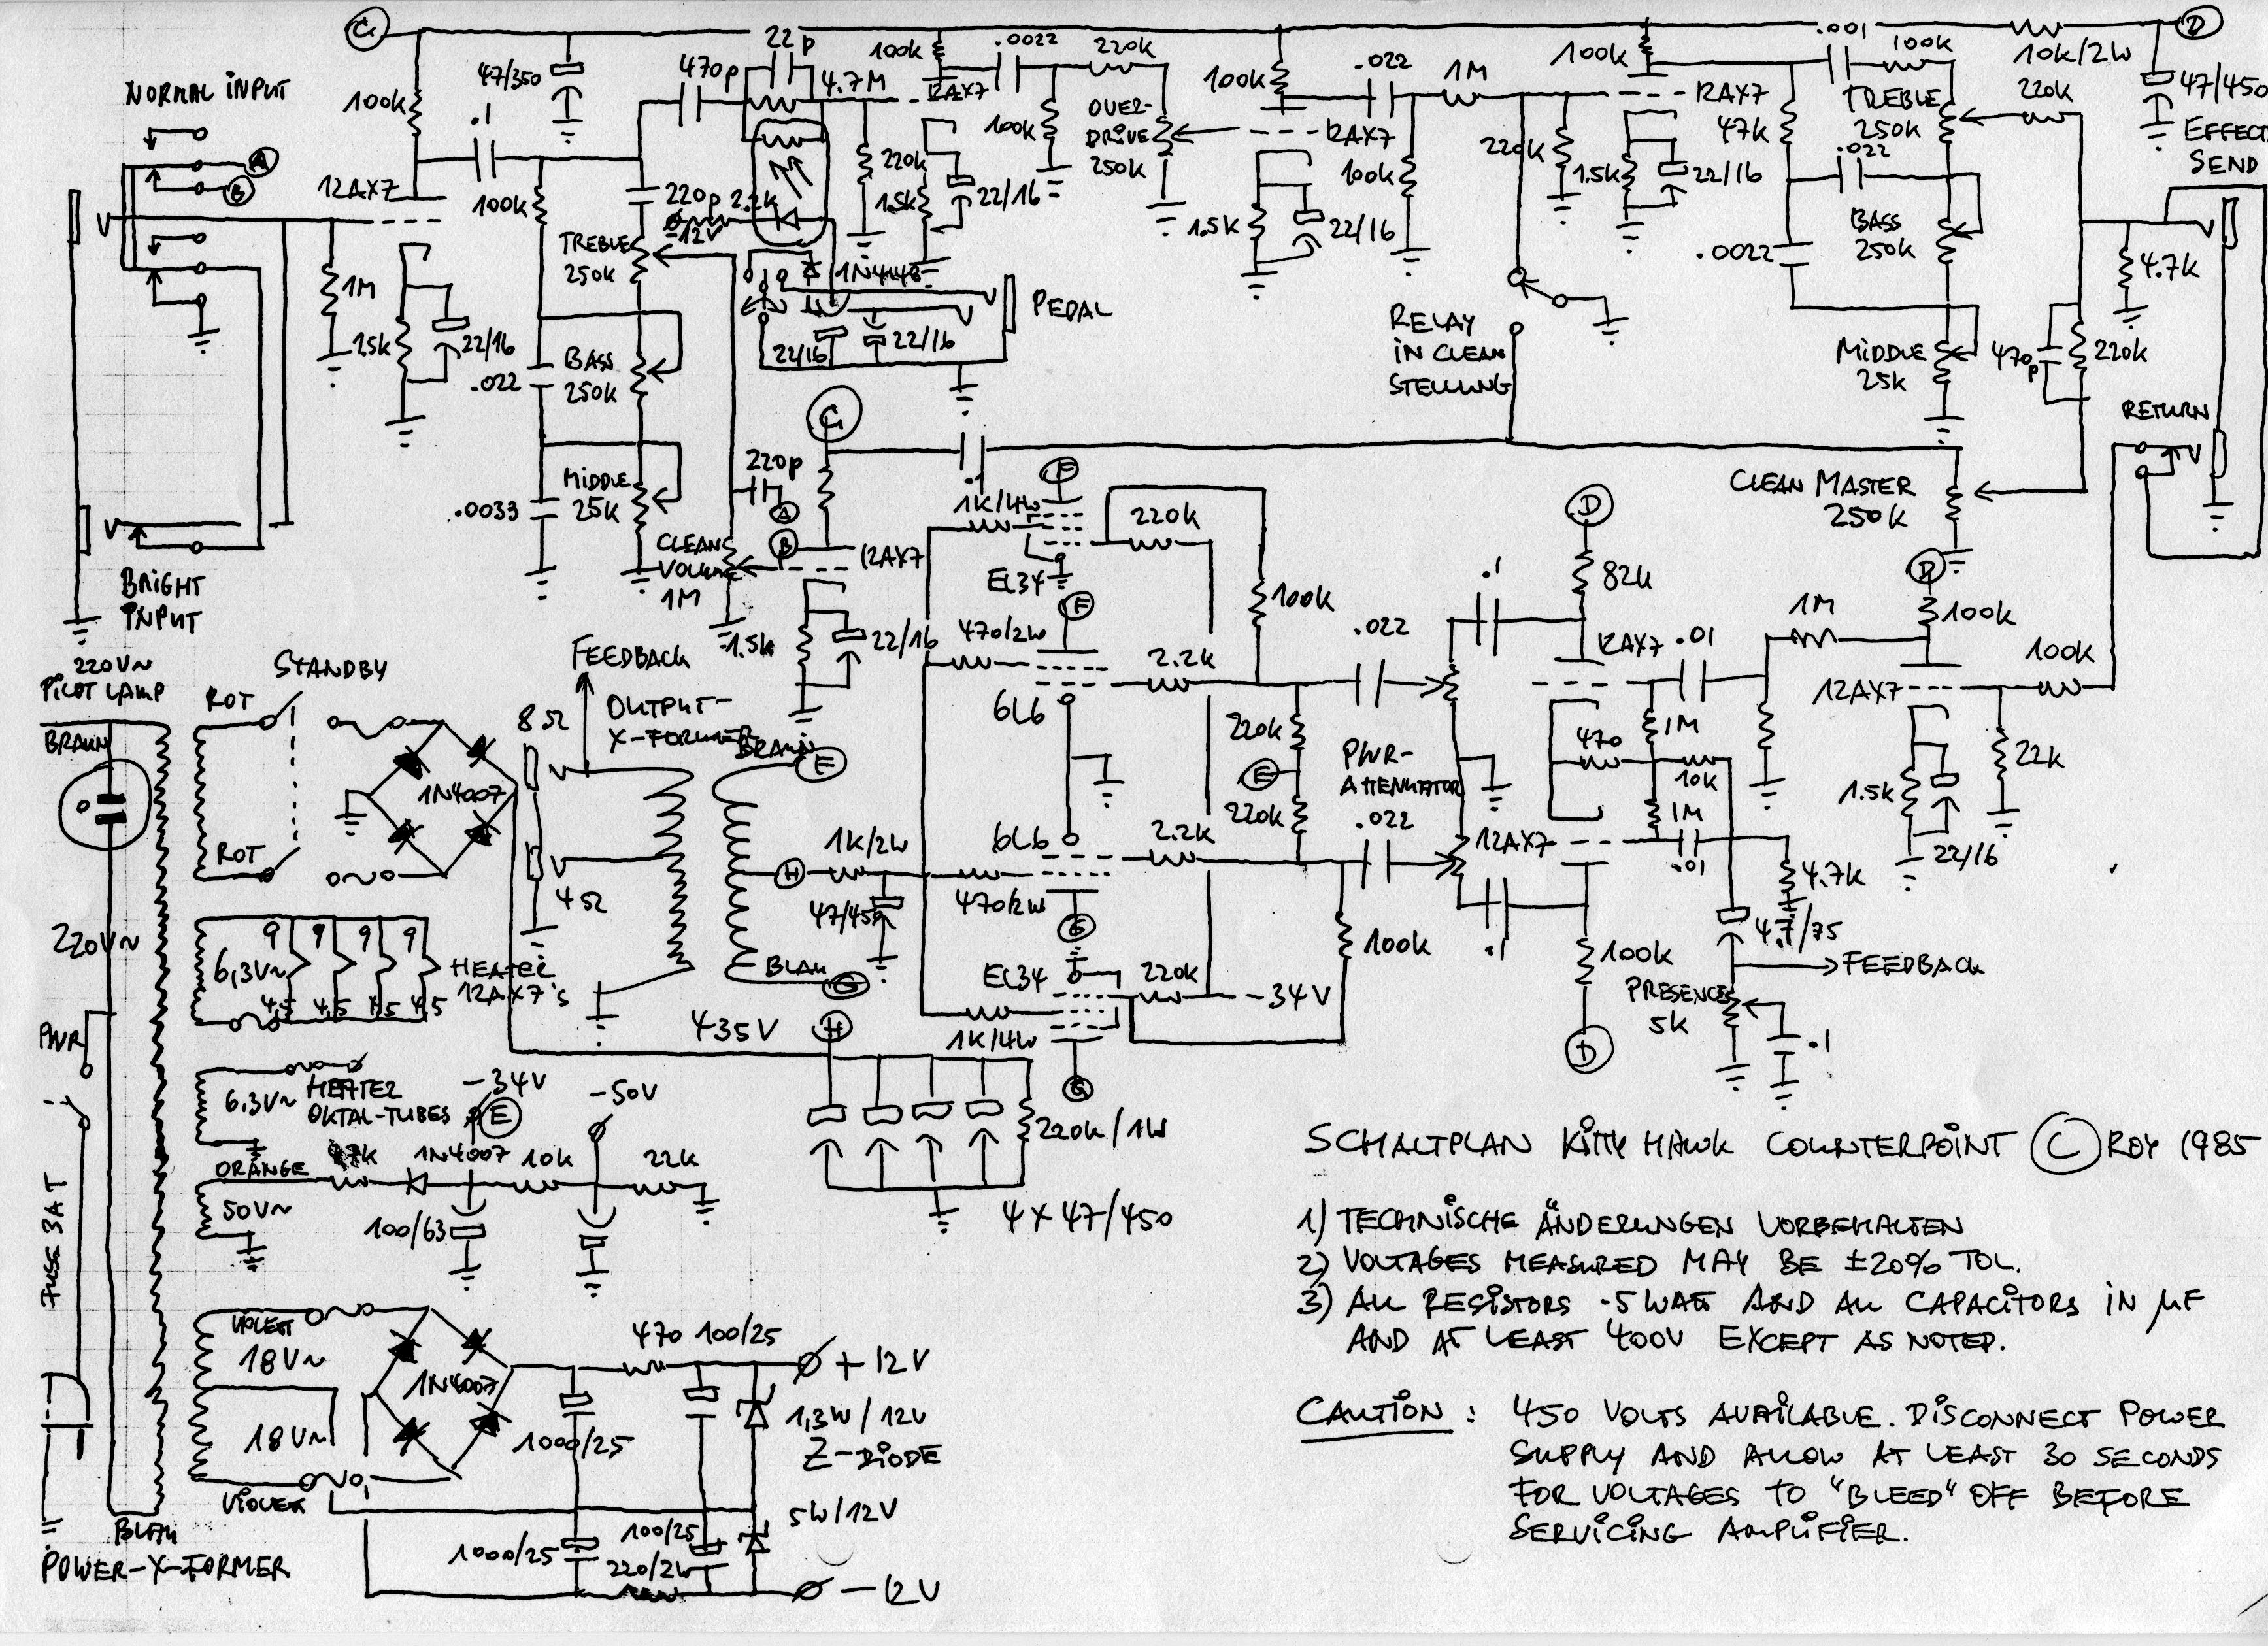 C
D
22p
.0022
220k
.001
100k
10k/2W
47/350
470p
4.7M
100k
12AX7
100k
.022
1M
100k
12AX7
220k
47/450
NORMAL INPUT
100k
.1
A
B
12AX7
100k
220p
2.2k
-12V
220k
1.5k
22/16
100k
OVER-
DRIVE
250k
12AX7
100k
220k
1.5k
22/16
47k
TREBLE
250k
.022
EFFECT
SEND
TREBLE
250k
1N4148
PEDAL
1.5k
22/16
BASS
250k
.0022
4.7k
1M
1.5k
22/16
22/16
22/16
RELAY
IN CLEAN
STELLUNG
MIDDLE
25k
470p
220k
BASS
250k
.022
RETURN
C
220p
.1
MIDDLE
25k
.0033
A
B
CLEAN
VOLUME
1M
12AX7
F
1K/4W
220k
EL34
D
CLEAN MASTER
250k
BRIGHT
INPUT
1.5k
22/16
F
470/2W
100k
.1
82k
D
100k
1M
FEEDBACK
2.2k
.022
12AX7
.01
100k
12AX7
220V~
PILOT LAMP
STANDBY
ROT
BRAUN
8Ω
OUTPUT-
X-FORMER
BRAUN
F
6L6
220k
470
1M
10k
E
PWR-
ATTENUATOR
1N4007
220k
1M
22k
1.5k
22/16
ROT
4Ω
H
1K/2W
6L6
2.2k
.022
12AX7
.01
4.7k
47/450
470/2W
G
100k
.1
100k
4.7/75
FEEDBACK
220V~
9 9 9 9
6,3V~
4,5 4,5 4,5 4,5
HEATER
12AX7's
BLAU
G
EL34
220k
-34V
PRESENCE
5k
.1
435V
H
1K/4W
G
D
PWR
6,3V~
HEATER
OKTAL-TUBES
-34V
E
-50V
220k/1W
ORANGE
1N4007
10k
22k
50V~
100/63
4 X 47/450
FUSE 3AT
SCHALTPLAN KITTY HAWK COUNTERPOINT © ROY 1985
1) TECHNISCHE ÄNDERUNGEN VORBEHALTEN
2) VOLTAGES MEASURED MAY BE ±20% TOL.
3) ALL RESISTORS .5 WATT AND ALL CAPACITORS IN µF
AND AT LEAST 400V EXCEPT AS NOTED.
VIOLETT
18V~
1N4007
470
100/25
+12V
1,3W/12V
Z-DIODE
18V~
1000/25
VIOLETT
5W/12V
1000/25
100/25
220/2W
-12V
BLAU
POWER-X-FORMER
CAUTION: 450 VOLTS AVAILABLE. DISCONNECT POWER
SUPPLY AND ALLOW AT LEAST 30 SECONDS
FOR VOLTAGES TO "BLEED" OFF BEFORE
SERVICING AMPLIFIER.